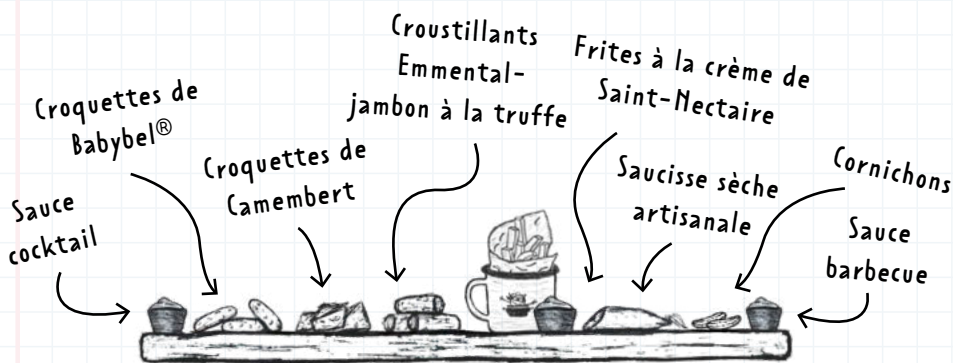 Croquettes de
Babybel®
Sauce
cocktail
Croquettes de
Camembert
Croustillants
Emmental-
jambon à la truffe
Frites à la crème de
Saint-Nectaire
Saucisse sèche
artisanale
Cornichons
Sauce
barbecue